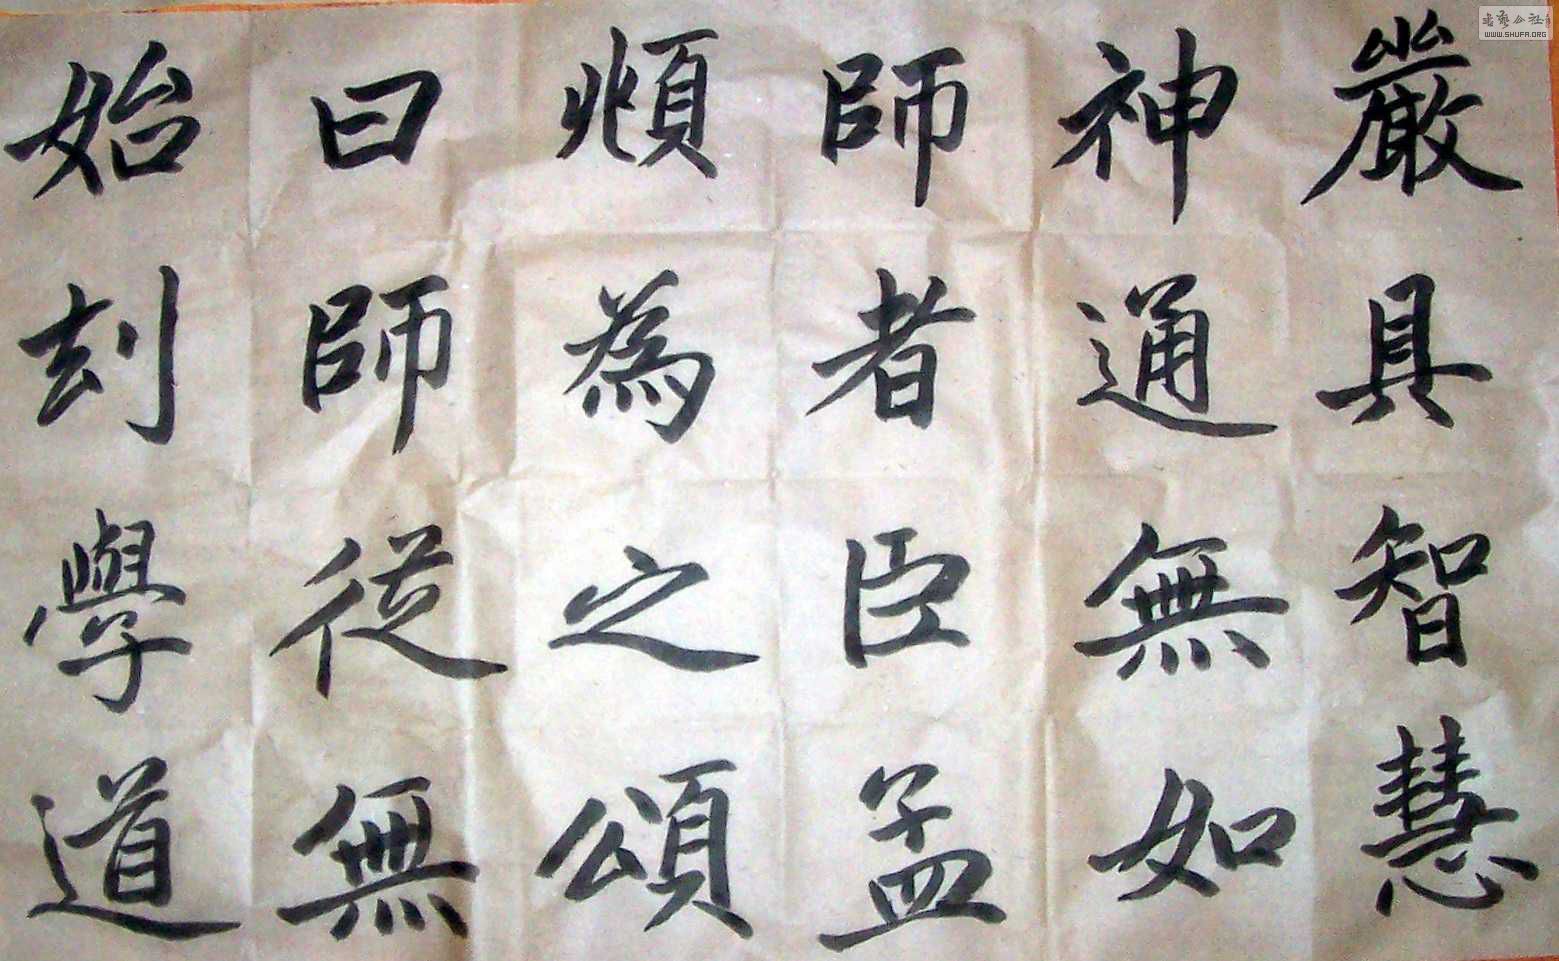 嚴具智慧
神通無如
師者臣孟
頫為之頌
曰師從無
始刻學道
書藝公社
WWW.SHUFA.ORG